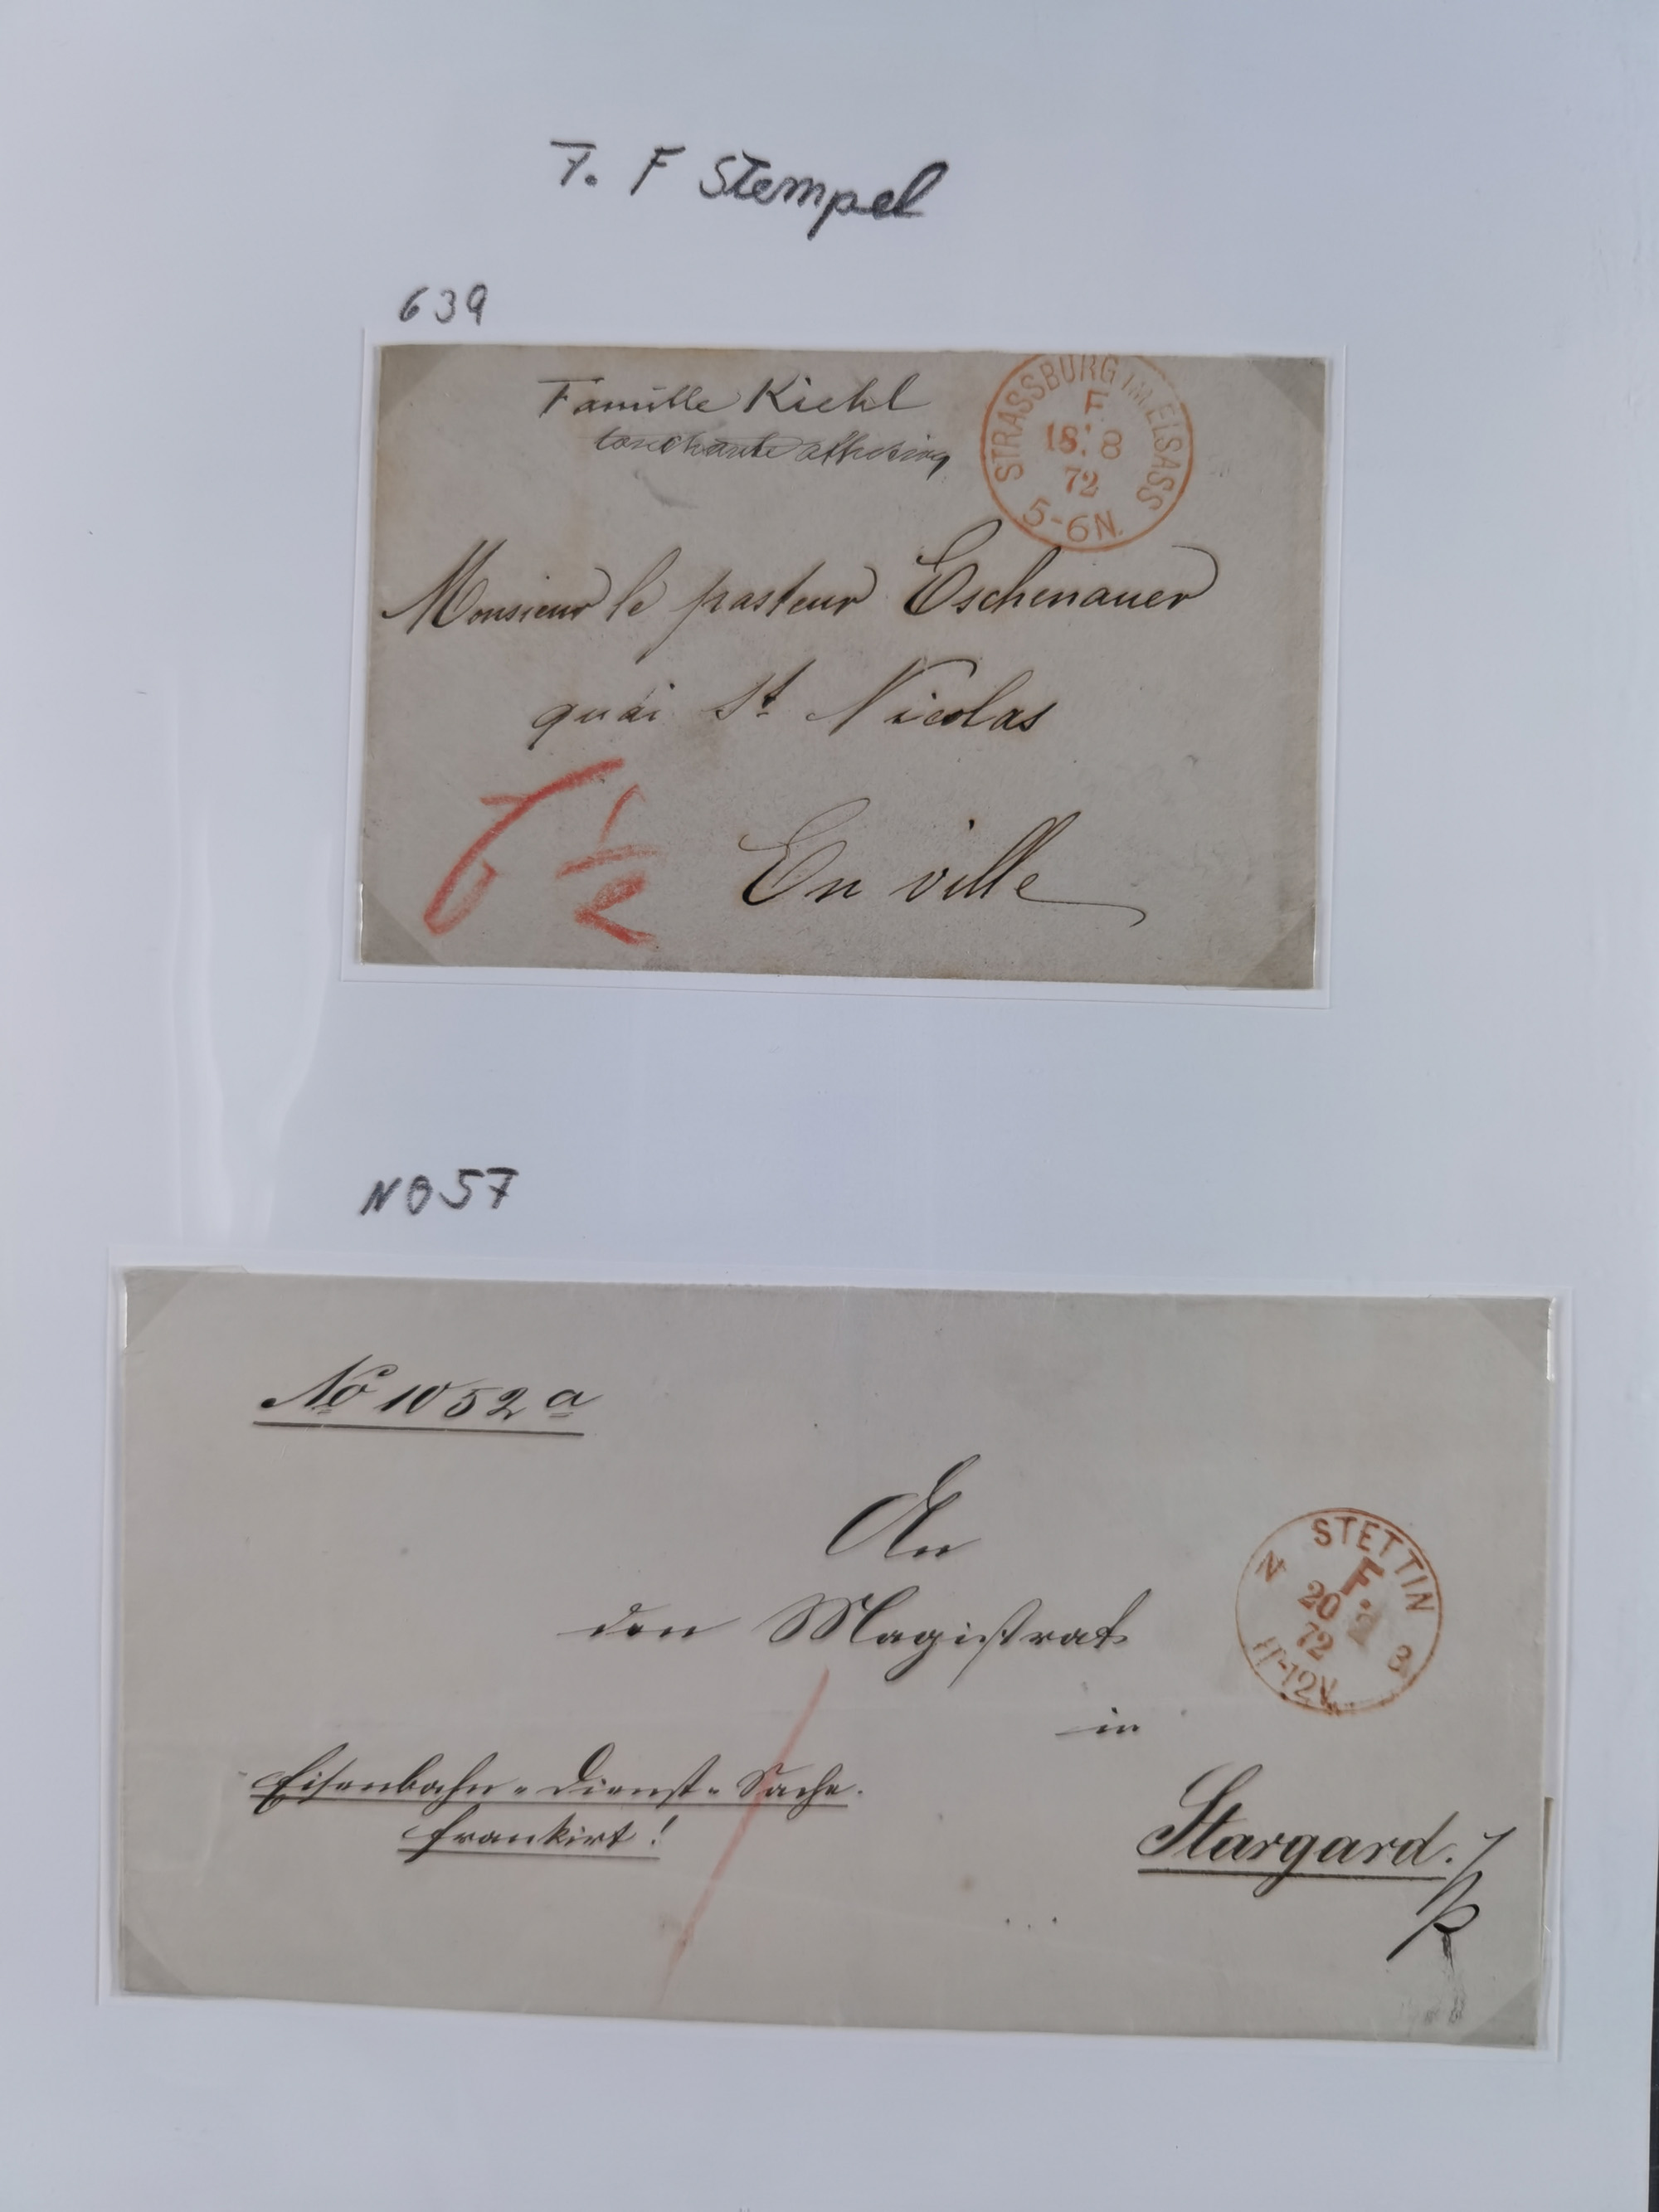 7. F Stempel
639
Famille Kiehl
STRASSBURG IM ELSASS
F.
18. 8
72
5-6N.
Monsieur le pasteur Eschenauer
quai St. Nicolas
6 1/2
En ville
N857
No 1052 a
An
den Magistrat
in
Stargard. 
STETTIN
N B
F.
20 2
72
11-12V.
Eisenbahn-Dienst-Sache.
frankirt!